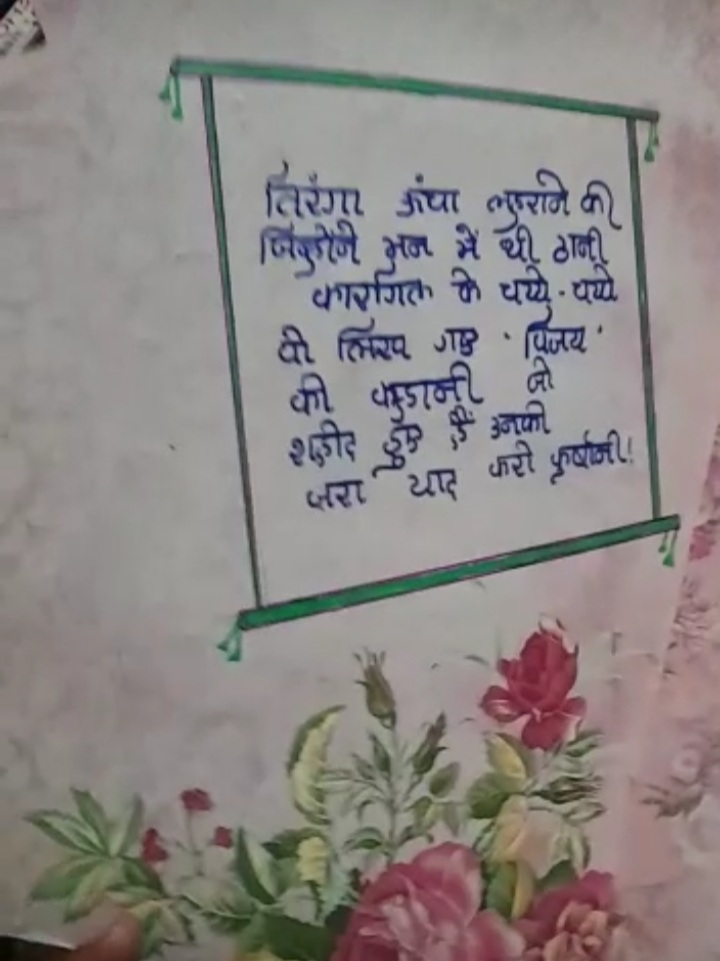 तिरंगा ऊंचा लहराने की
जिन्होंने मन में थी ठानी
कारगिल के चप्पे-चप्पे
वो लिख गए 'विजय'
की कहानी जो
शहीद हुए हैं उनकी
जरा याद करो कुर्बानी!